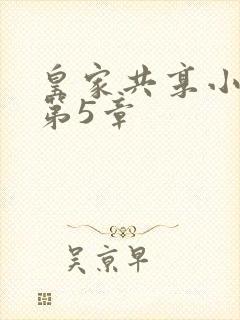 皇家共享小
第5章
吴京早